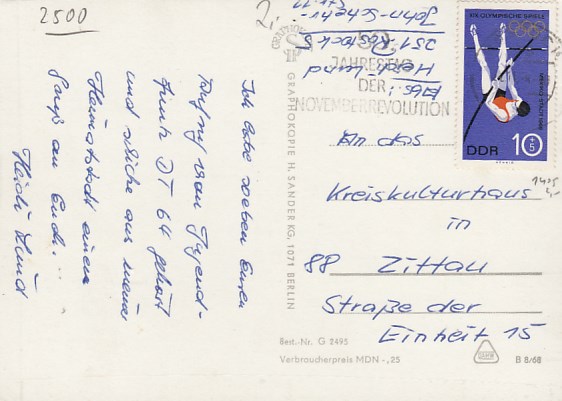 2500
2.
Ich habe soeben Euren
Aufruf vom Jugend-
funk DT 64 gehört
und möchte aus meiner
Heimatstadt einen
Gruß an Euch..
Heidi Lund
GRAPHOKOPIE H. SANDER KG, 1071 BERLIN
Abs.:
Heidi Lund
251 Rostock 5
John-Schehr-
50.
JAHRESTAG
DER
NOVEMBERREVOLUTION
XIX. OLYMPISCHE SPIELE
MEXICO-STADT 1968
10+5
DDR
An das
Kreiskulturhaus
in
88 Zittau
Straße der
Einheit 15
Best.-Nr. G 2495
Verbraucherpreis MDN -,25
B 8/68